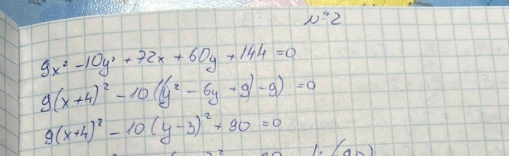 №2
9x² - 10y² + 72x + 60y + 144 = 0
9(x+4)² - 10((y² - 6y + 9) - 9) = 0
9(x+4)² - 10(y-3)² + 90 = 0